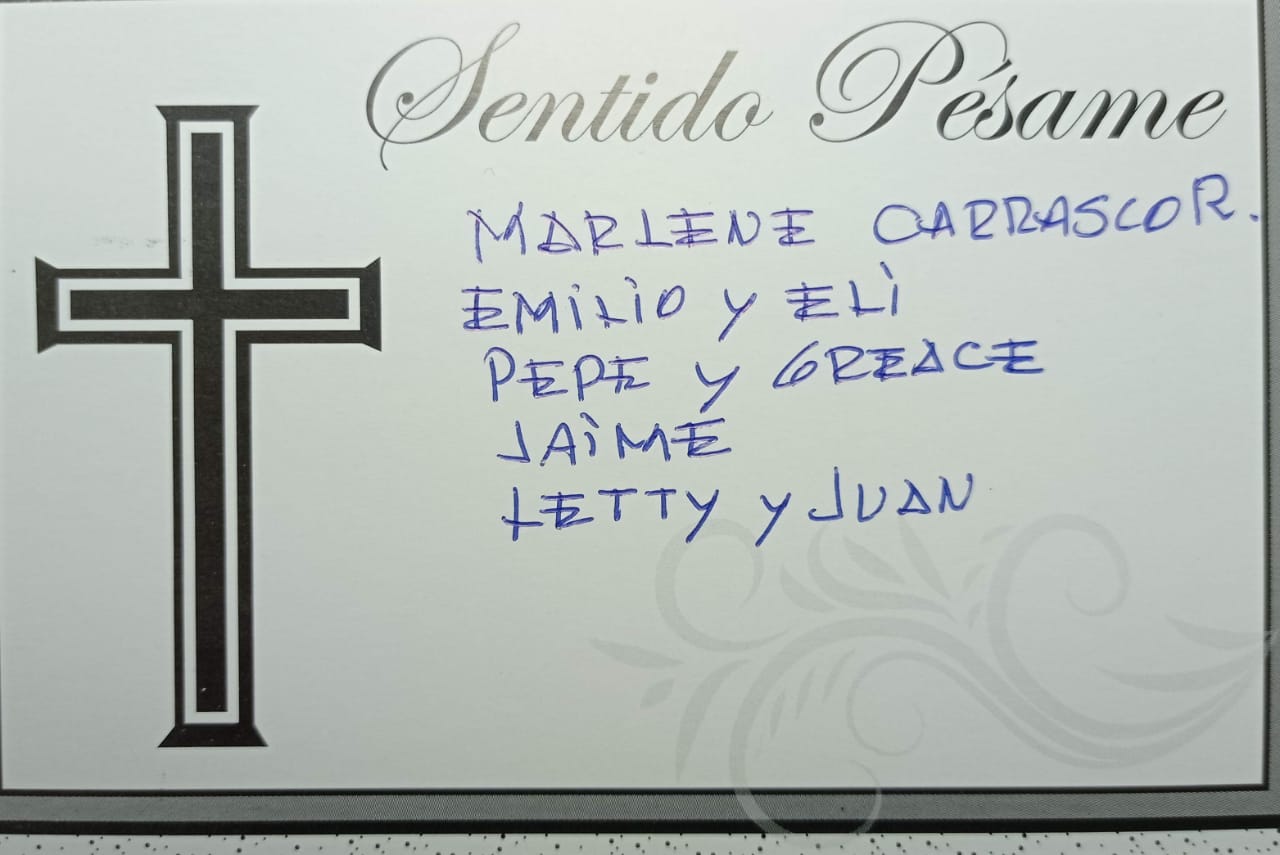 Sentido Pésame
MARLENE CARRASCO R.
EMILIO y ELI
PEPE y GREACE
JAIME
LETTY y JUAN